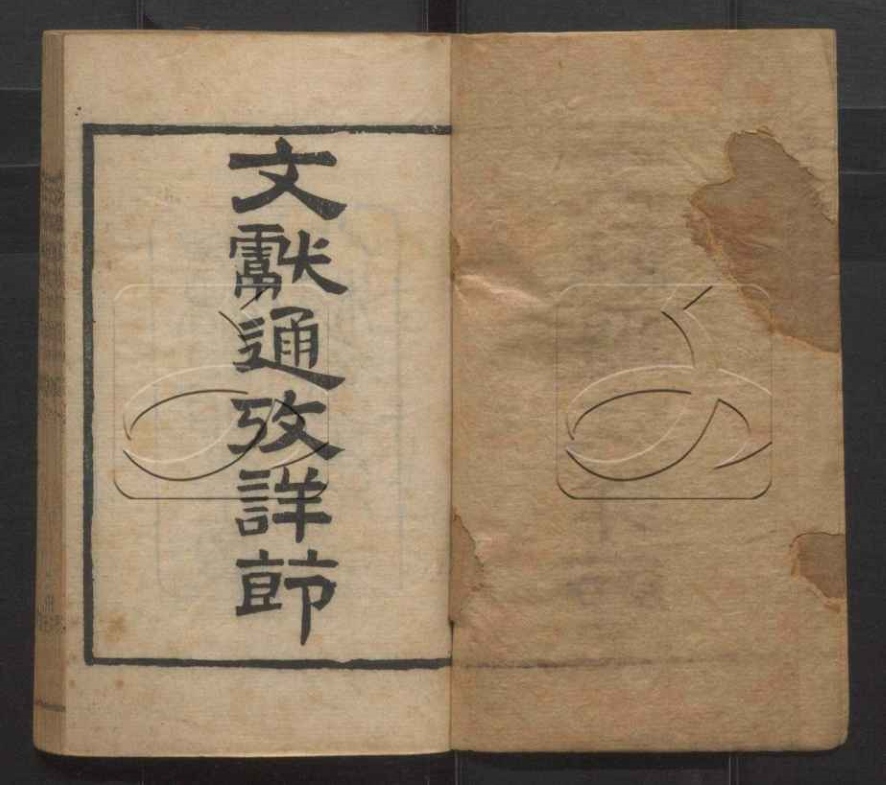 文獻通攷詳節